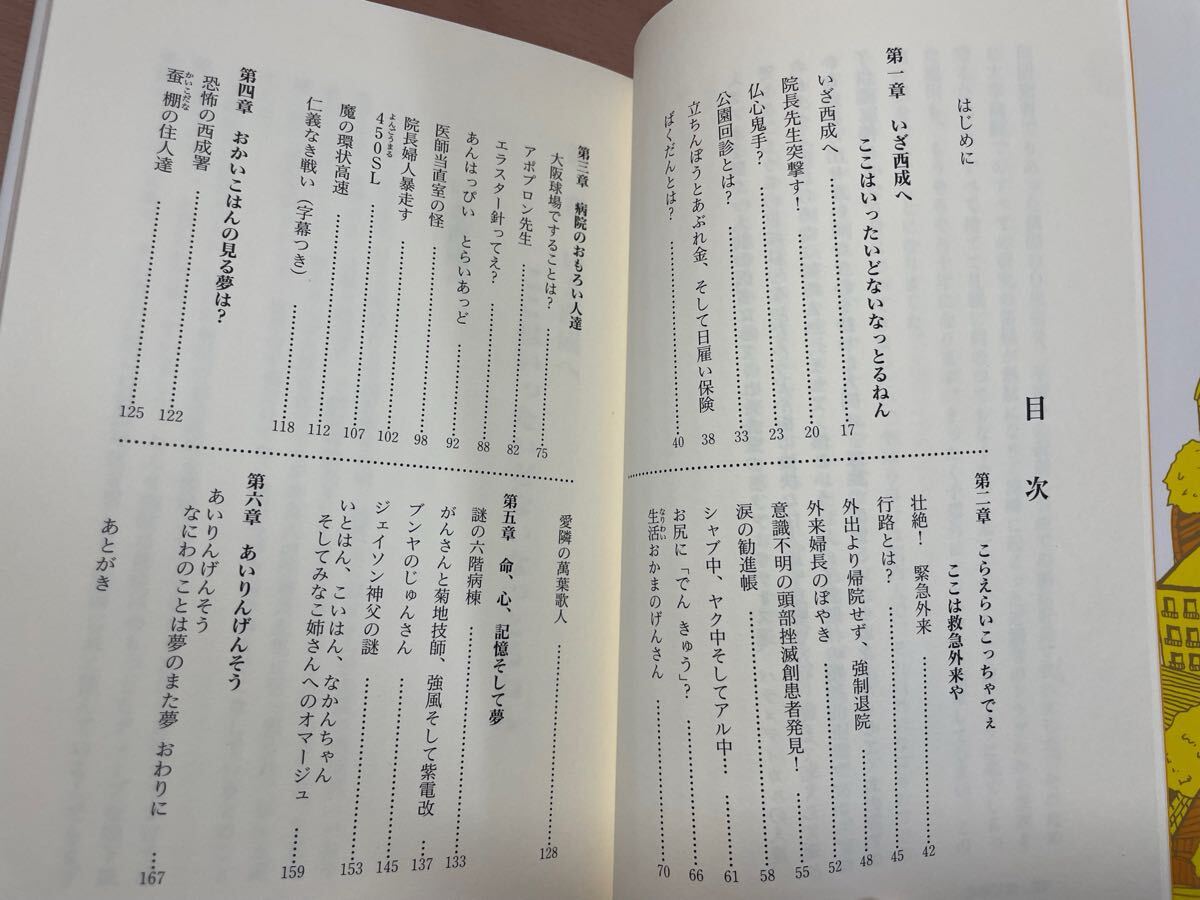 目次
はじめに
第一章 いざ西成へ
ここはいったいどないなっとるねん
いざ西成へ……17
院長先生突撃す!……20
仏心鬼手?……23
公園回診とは?……33
立ちんぼうとあぶれ金、そして日雇い保険 38
ばくだんとは?……40
第二章 こらえらいこっちゃでぇ
ここは救急外来や
壮絶! 緊急外来……42
行路とは?……45
外出より帰院せず、強制退院……48
外来婦長のぼやき……52
意識不明の頭部挫滅創患者発見!……55
涙の勧進帳……58
シャブ中、ヤク中そしてアル中……61
お尻に「でん きゅう」?……66
生活おかまのげんさん……70
なりわい
第三章 病院のおもろい人達
大阪球場ですることは?……75
アポプロン先生……82
エラスター針ってえ?……88
あんはっぴい とらいあっど……92
医師当直室の怪……98
院長婦人暴走す……102
450SL……107
よんごうまる
魔の環状高速……112
仁義なき戦い(字幕つき)……118
第四章 おかいこはんの見る夢は?
恐怖の西成署……122
蚕棚の住人達……125
かいこだな
愛隣の萬葉歌人……128
第五章 命、心、記憶そして夢
謎の六階病棟……133
がんさんと菊地技師、強風そして紫電改……137
ブンヤのじゅんさん……145
ジェイソン神父の謎……153
いとはん、こいはん、なかんちゃん
そしてみなこ姉さんへのオマージュ……159
第六章 あいりんげんそう
あいりんげんそう
なにわのことは夢のまた夢 おわりに……167
あとがき